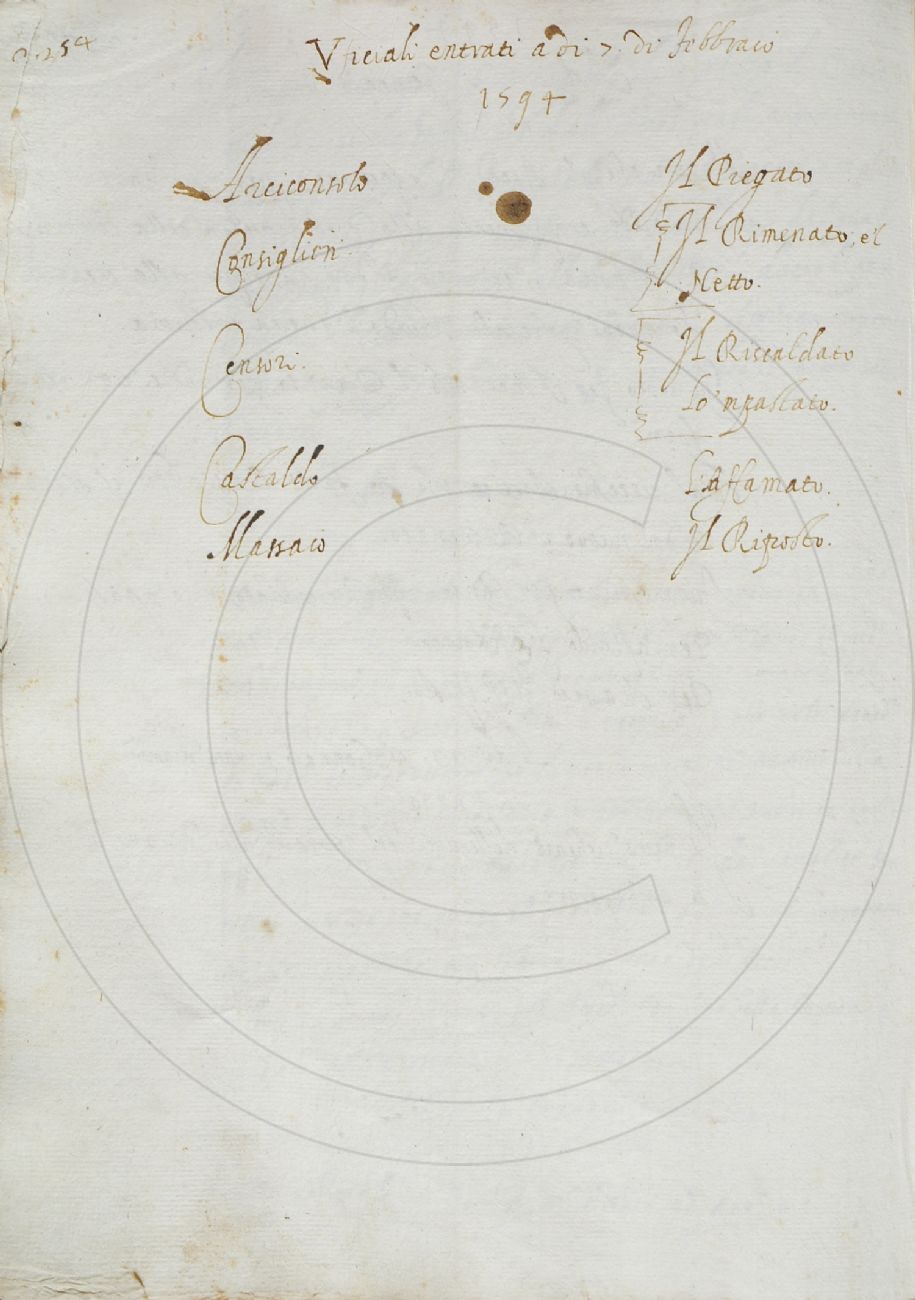 254
Vficiali entrati a di 7. di Febbraio
1594
Arciconsolo Il Piegato
Consiglieri Il Rimenato, e'l
Netto.
Censori. Il Riscaldato
Lo'mpastato.
Castaldo L'Affamato.
Massaio Il Riposto.